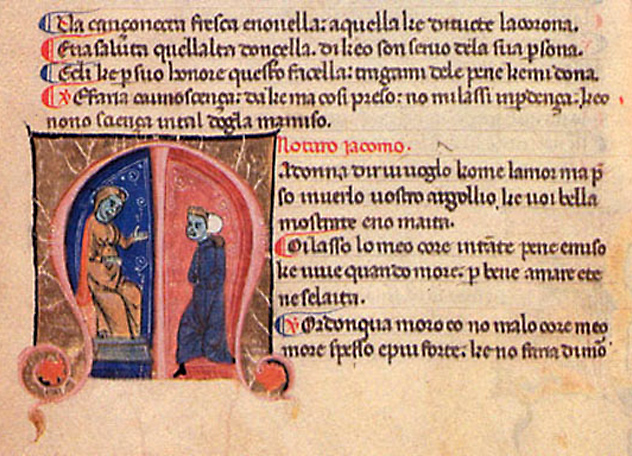 Va cançonecta fresca enouella: aquella ke ditucte lacorona.
Eua saluta quellalta doncella. di keo son seruo dela sua psona.
Edi ke p suo honore questo facella: tragami dele pene kemi dona.
Efaria canoscença: da ke ma cosi preso: no milassi inpdença: keo
nono sciença intal dogla mamiso.
Notaro jacomo.
Adonna dir uuoglo kome lamor ma p
so inuerlo uostro argollio, ke uoi bella
mostrate eno maita.
Oilasso lo meo core intāte pene emiso
ke uiue quando more. p bene amare ete
neselaita.
Or donqua moro eo no malo core meo
more spesso epiu forte. ke no faria dimō